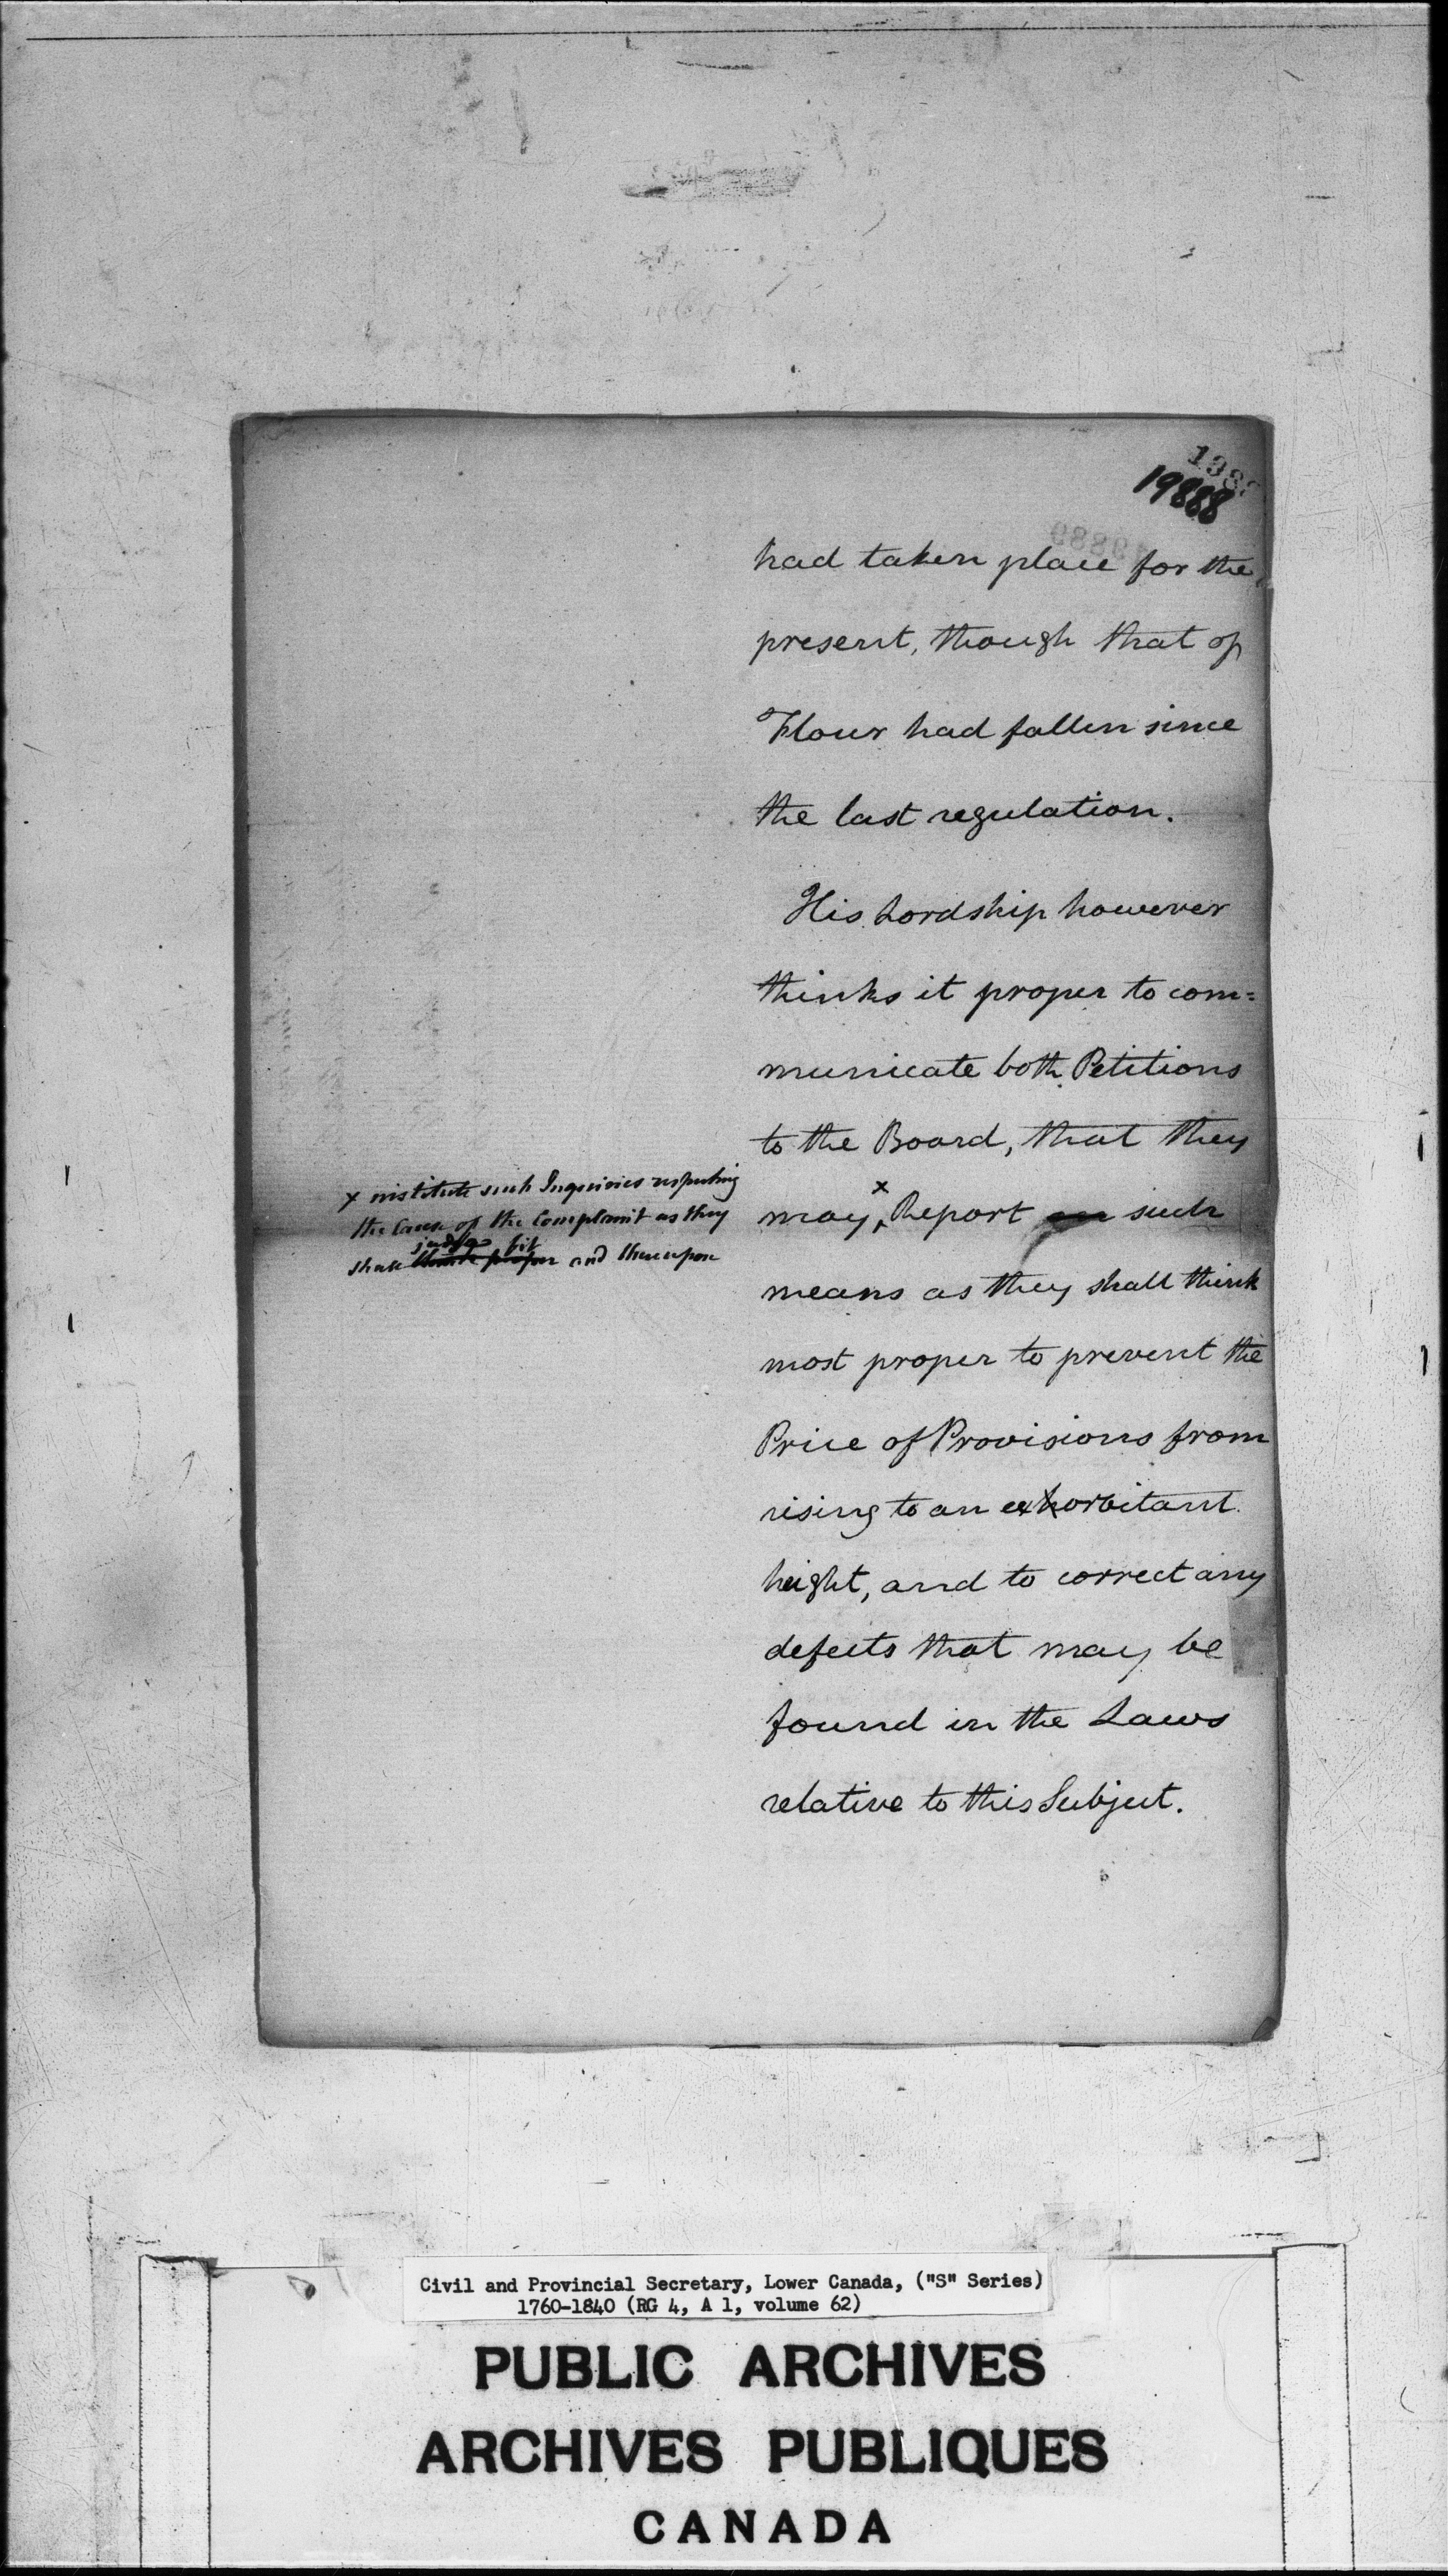 19888
had taken place for the
present, though that of
Flour had fallen since
the last regulation.
His Lordship however
thinks it proper to com=
municate both Petitions
to the Board, that they
may x Report on such
means as they shall think
most proper to prevent the
Price of Provisions from
rising to an exhorbitant
height, and to correct any
defects that may be
found in the Laws
relative to this Subject.
x institute such Inquiries respecting
the Cause of the Complaint as they
judge fit
shall think proper and thereupon
Civil and Provincial Secretary, Lower Canada, ("S" Series)
1760-1840 (RG 4, A 1, volume 62)
PUBLIC ARCHIVES
ARCHIVES PUBLIQUES
CANADA